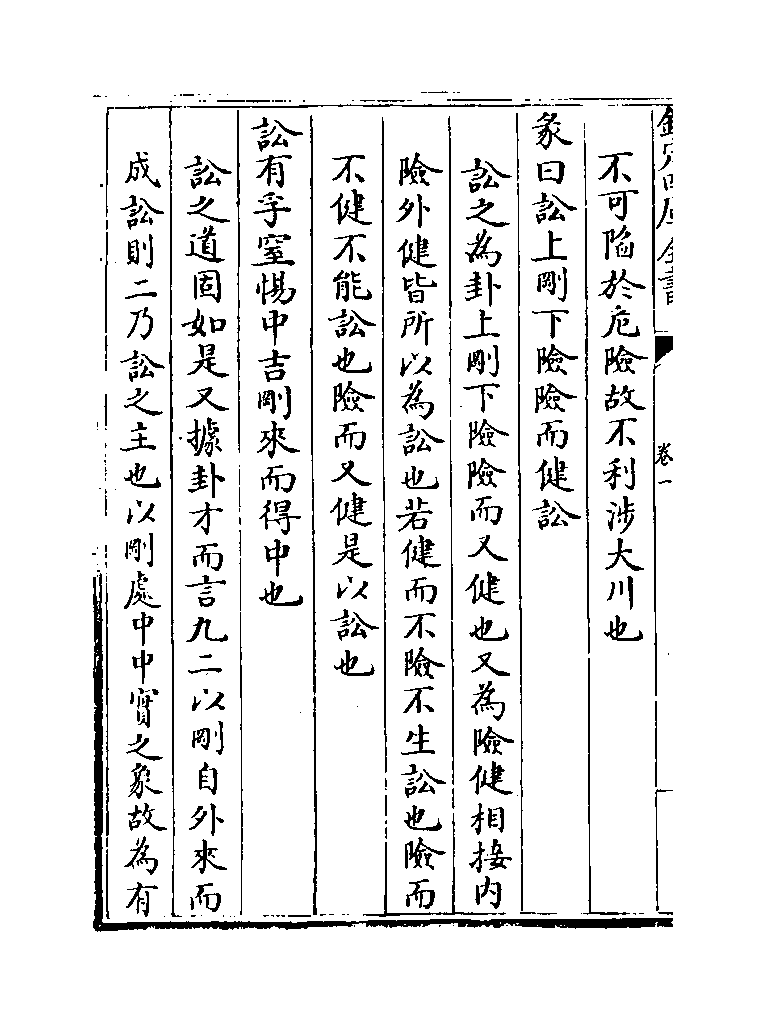 欽定四庫全書
卷一
不可陷於危險故不利涉大川也
彖曰訟上剛下險險而健訟
訟之為卦上剛下險險而又健也又為險健相接内
險外健皆所以為訟也若健而不險不生訟也險而
不健不能訟也險而又健是以訟也
訟有孚窒惕中吉剛來而得中也
訟之道固如是又據卦才而言九二以剛自外來而
成訟則二乃訟之主也以剛處中中實之象故為有